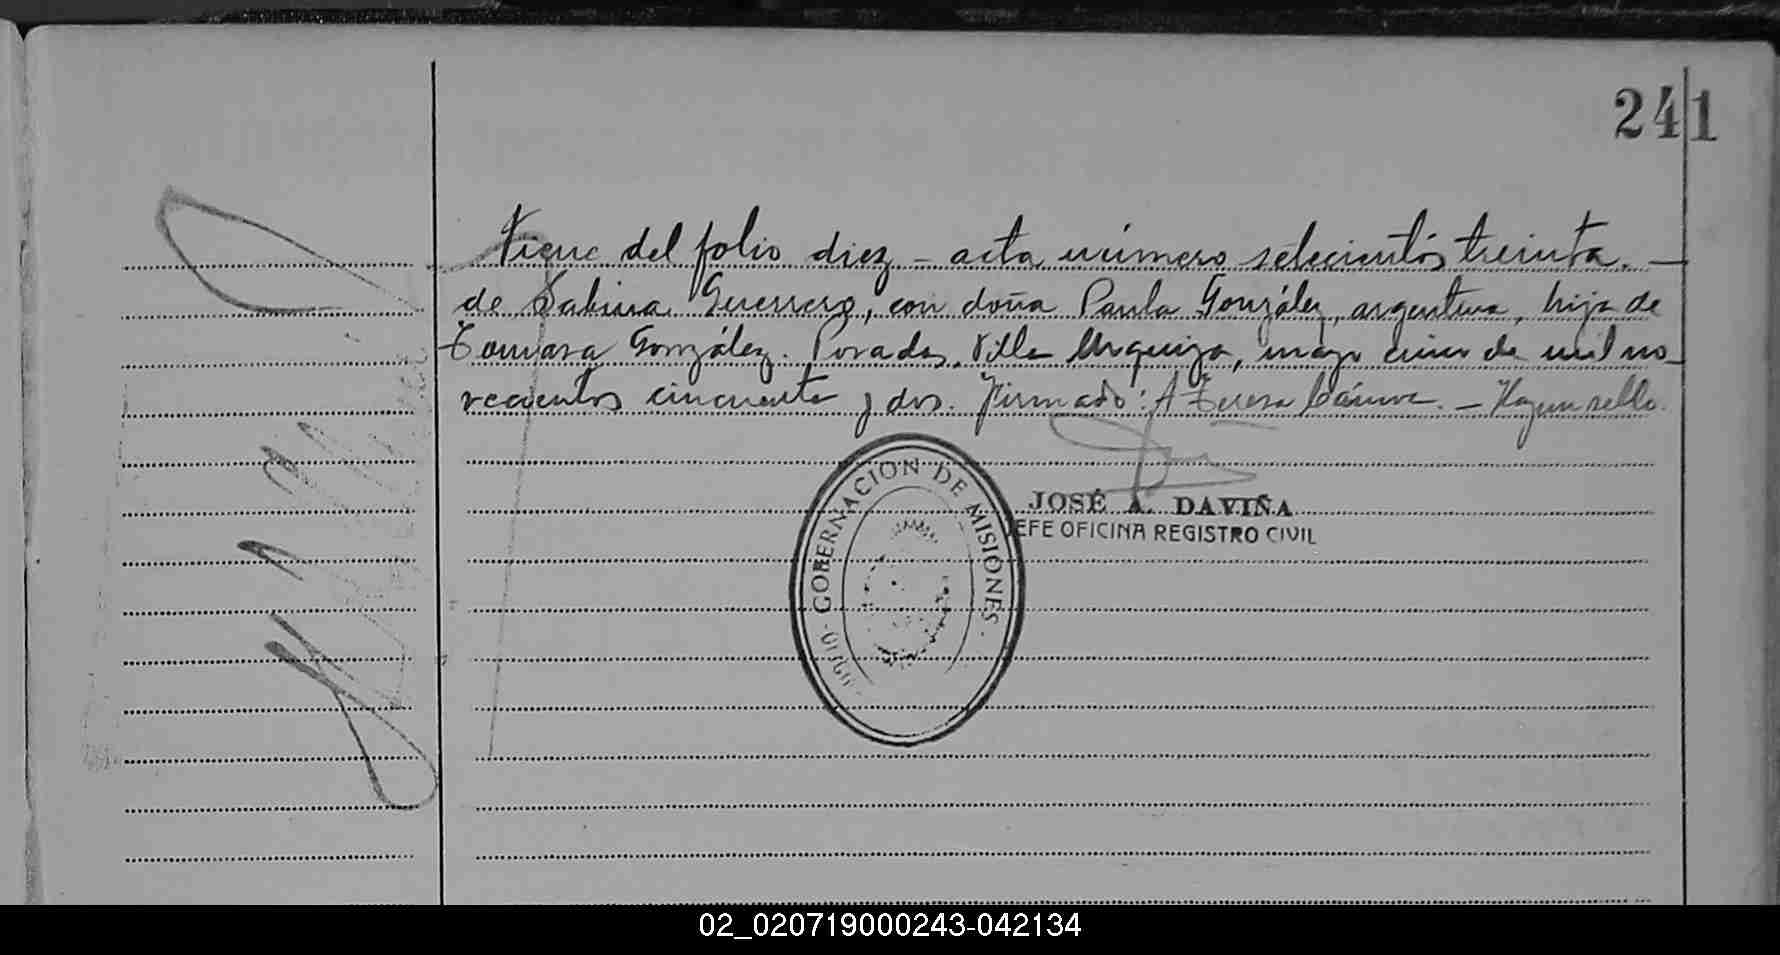 241
Viene del folio diez – acta número setecientos treinta. —
de Sabina Guerrero, con doña Paula González, argentina, hija de
Tomasa González. Posadas, Villa Urquiza, mayo cinco de mil no-
vecientos cincuenta y dos. Firmado: A Teresa – Hay un sello.
GOBERNACION DE MISIONES
JOSÉ A. DAVIÑA
JEFE OFICINA REGISTRO CIVIL
02_020719000243-042134